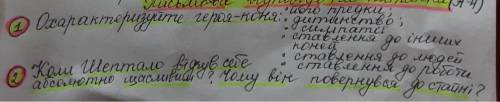 1 Охарактеризуйте героя-коня: його предки;
: дитинство;
: симпатії
: ставлення до інших
коней
: ставлення до людей
2 Коли Шептало відчув себе : ставлення до роботи
абсолютно щасливим? Чому він повернувся до стайні?